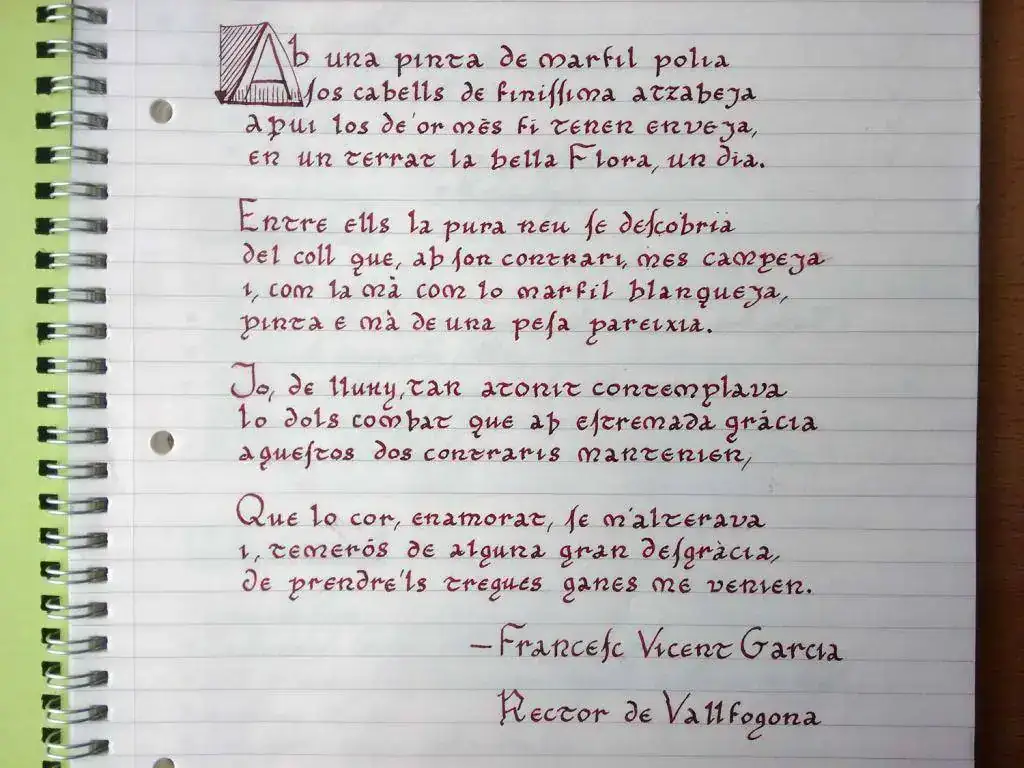 Ab una pinta de marfil polia
ſos cabells de finiſſima atzabeja
a qui los de'or mès fi tenen enveja,
en un terrat la bella Flora, un dia.
Entre ells la pura neu ſe deſcobria
del coll que, ab ſon contrari, mes campeja
i, com la mà com lo marfil blanqueja,
pinta e mà de una peſa pareixia.
Jo, de lluny, tan atonit contemplava
lo dols combat que ab eſtremada gràcia
aqueſtos dos contraris mantenien,
Que lo cor, enamorat, ſe m'alterava
i, temerós de alguna gran deſgràcia,
de prendre'ls tregues ganes me venien.
—Franceſc Vicent Garcia
Rector de Vallfogona